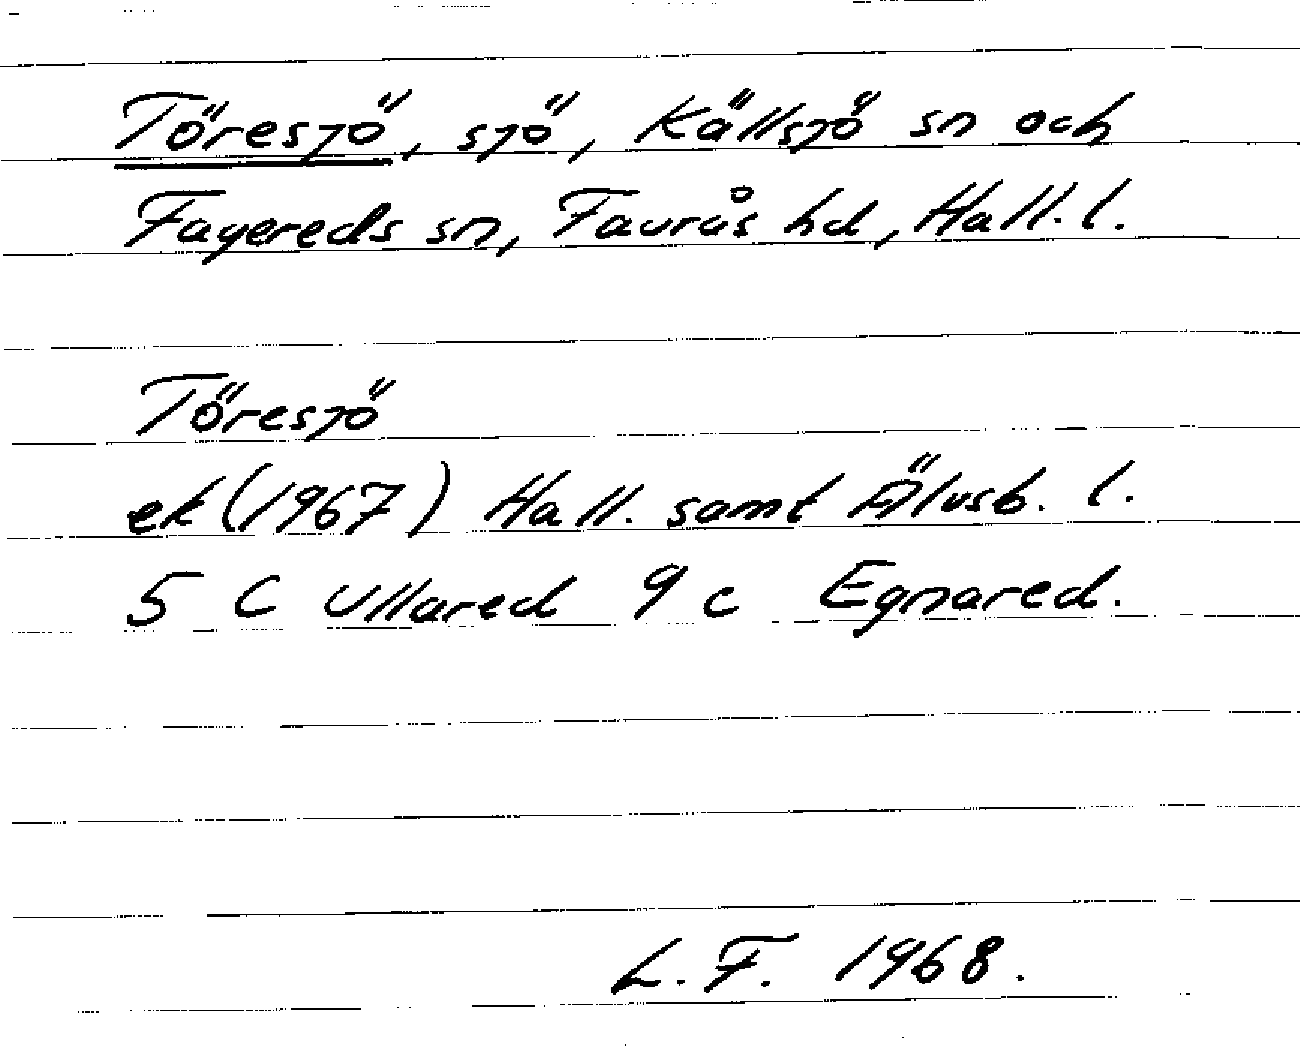 Töresjö, sjö, Källsjö sn och
Fagereds sn, Faurås hd, Hall. l.
Töresjö
ek (1967) Hall. samt Älvsb. l.
5 C Ullared 9 c Egnared.
L. F. 1968.